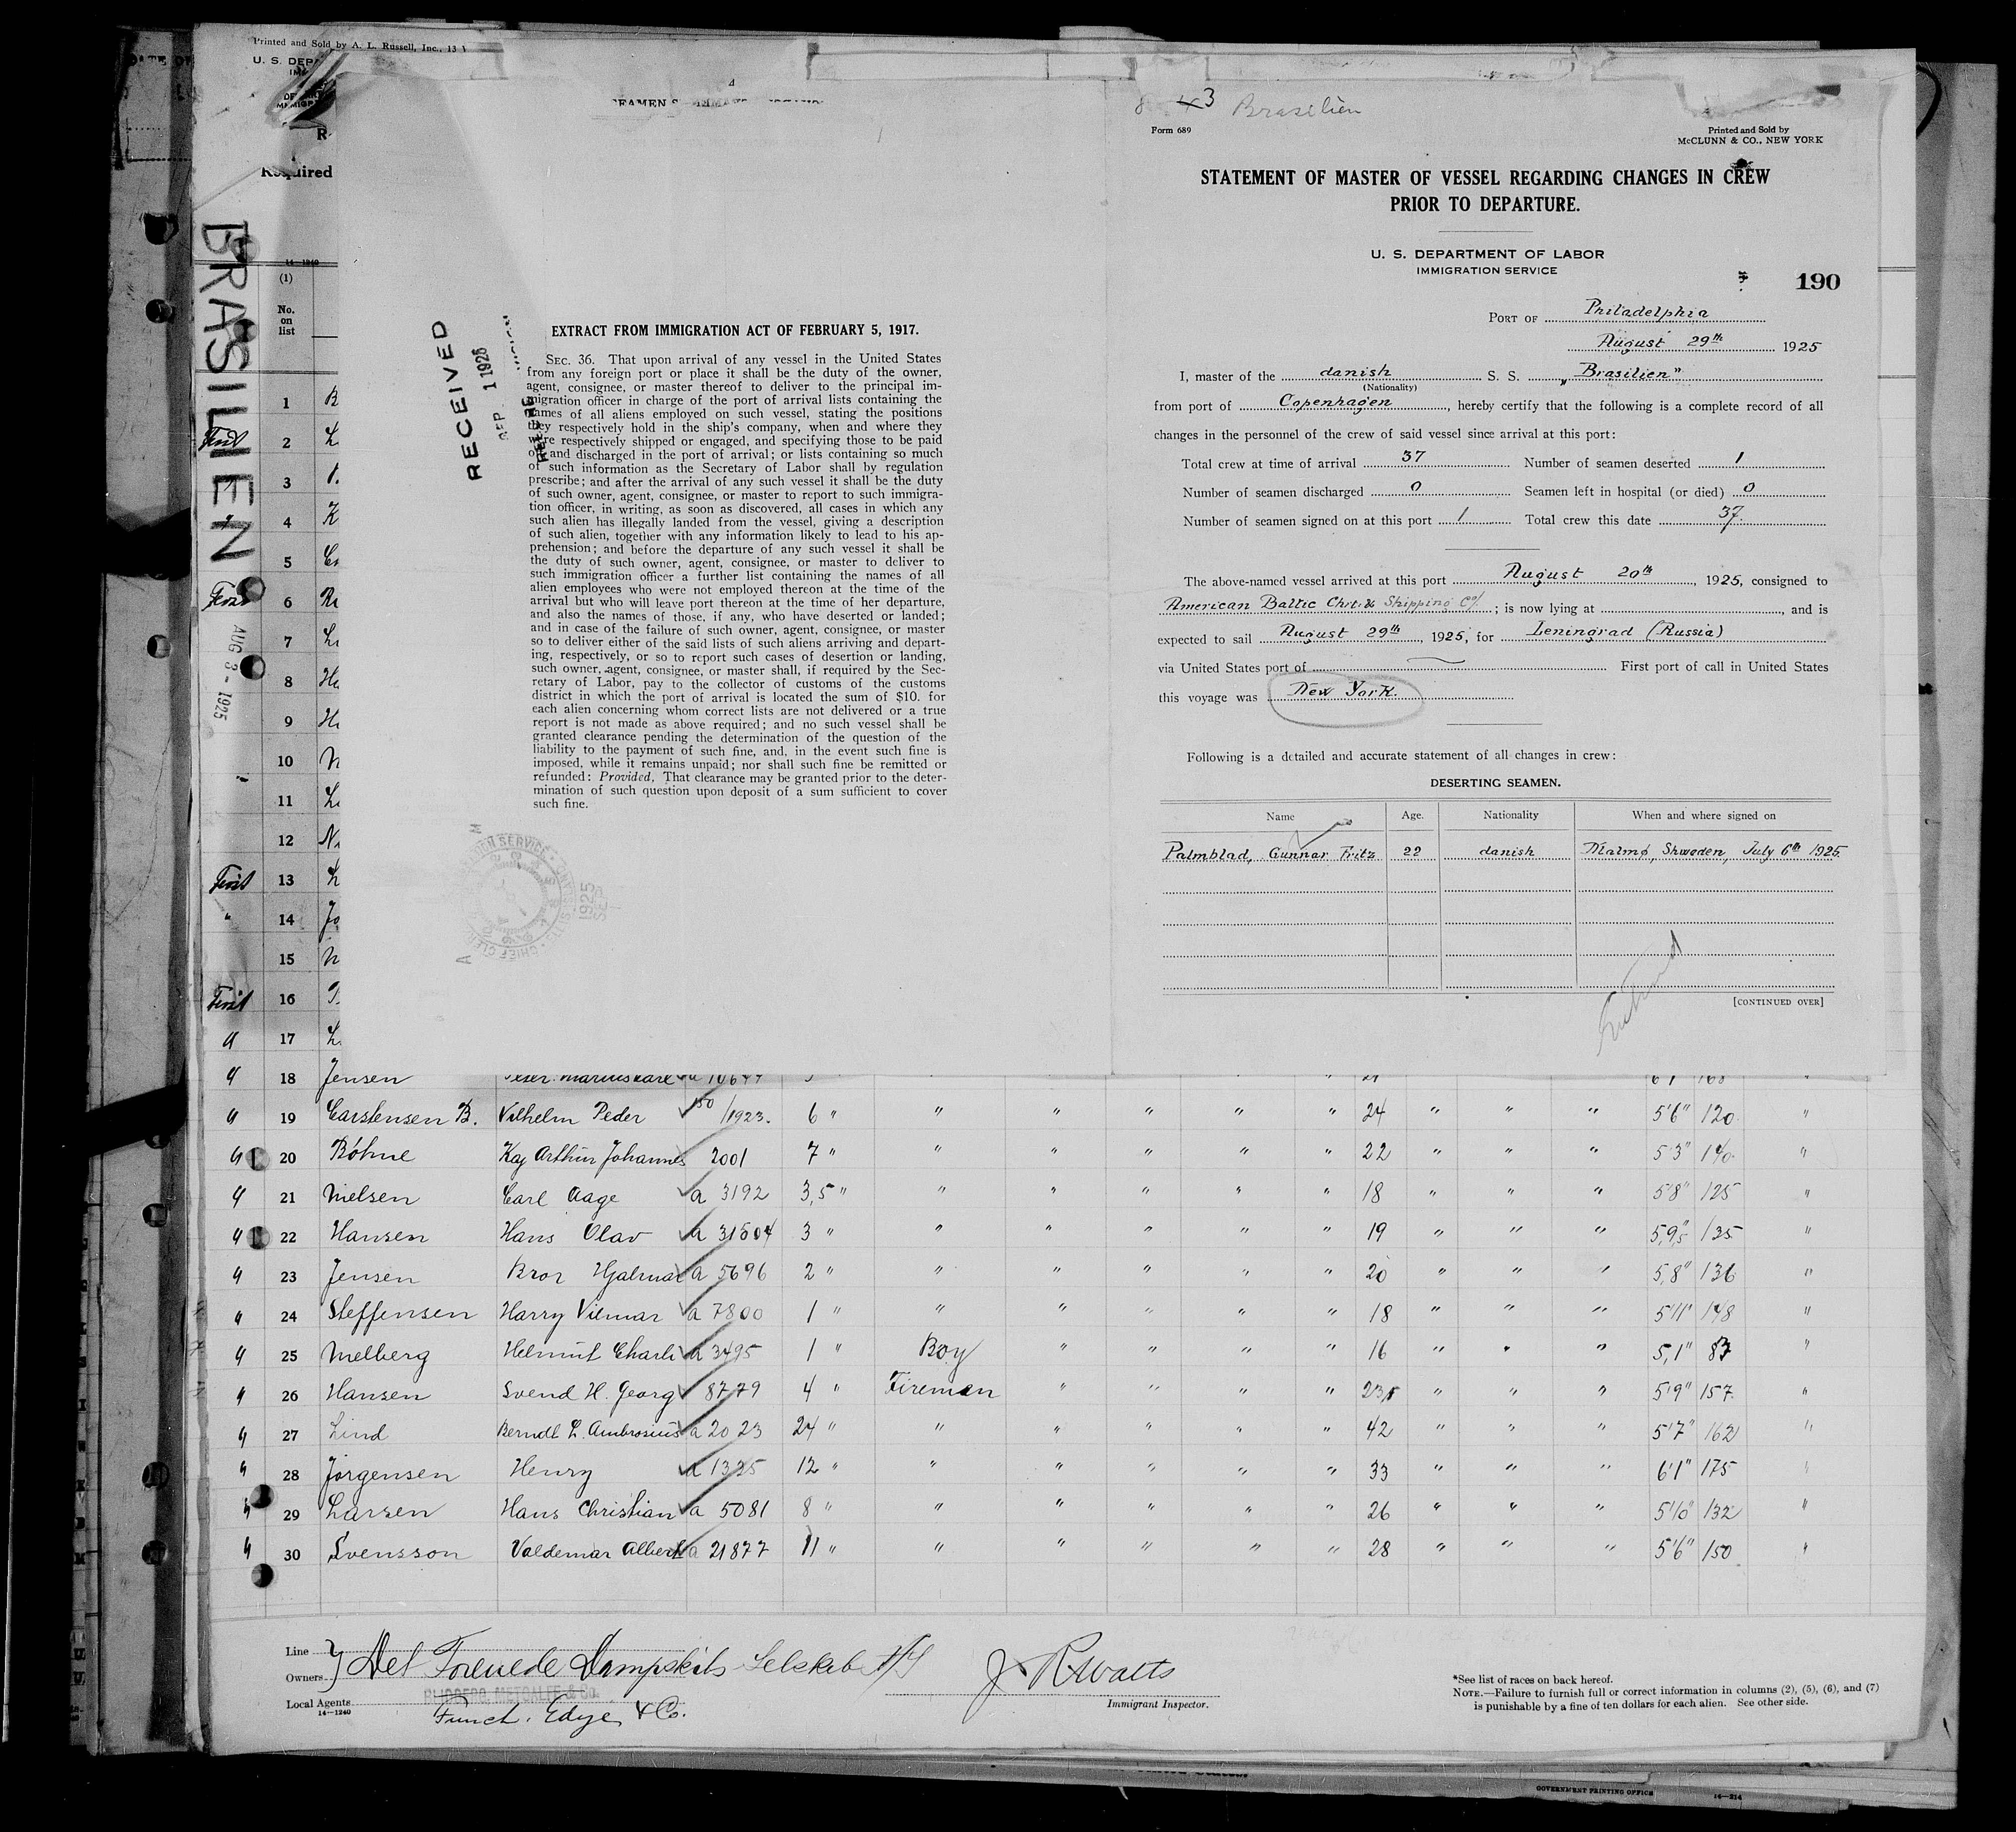 Printed and Sold by A. L. Russell, Inc., 13
U. S. DEP
Required
BRASILIEN
AUG 3 - 1925
14—1240
(1)
No.
on
list
1
2
3
4
5
6
7
8
9
10
11
12
First 13
" 14
15
First 16
" 17
RECEIVED
SEP 1 1925
EXTRACT FROM IMMIGRATION ACT OF FEBRUARY 5, 1917.
SEC. 36. That upon arrival of any vessel in the United States
from any foreign port or place it shall be the duty of the owner,
agent, consignee, or master thereof to deliver to the principal im-
migration officer in charge of the port of arrival lists containing the
names of all aliens employed on such vessel, stating the positions
they respectively hold in the ship's company, when and where they
were respectively shipped or engaged, and specifying those to be paid
off and discharged in the port of arrival; or lists containing so much
of such information as the Secretary of Labor shall by regulation
prescribe; and after the arrival of any such vessel it shall be the duty
of such owner, agent, consignee, or master to report to such immigra-
tion officer, in writing, as soon as discovered, all cases in which any
such alien has illegally landed from the vessel, giving a description
of such alien, together with any information likely to lead to his ap-
prehension; and before the departure of any such vessel it shall be
the duty of such owner, agent, consignee, or master to deliver to
such immigration officer a further list containing the names of all
alien employees who were not employed thereon at the time of the
arrival but who will leave port thereon at the time of her departure,
and also the names of those, if any, who have deserted or landed;
and in case of the failure of such owner, agent, consignee, or master
so to deliver either of the said lists of such aliens arriving and depart-
ing, respectively, or so to report such cases of desertion or landing,
such owner, agent, consignee, or master shall, if required by the Sec-
retary of Labor, pay to the collector of customs of the customs
district in which the port of arrival is located the sum of $10. for
each alien concerning whom correct lists are not delivered or a true
report is not made as above required; and no such vessel shall be
granted clearance pending the determination of the question of the
liability to the payment of such fine, and, in the event such fine is
imposed, while it remains unpaid; nor shall such fine be remitted or
refunded: Provided, That clearance may be granted prior to the deter-
mination of such question upon deposit of a sum sufficient to cover
such fine.
3 Brasilien
Form 689
Printed and Sold by
McCLUNN & CO., NEW YORK
STATEMENT OF MASTER OF VESSEL REGARDING CHANGES IN CREW
PRIOR TO DEPARTURE.
U. S. DEPARTMENT OF LABOR
IMMIGRATION SERVICE
190
PORT OF Philadelphia
August 29th 1925
I, master of the danish S. S. „Brasilien"
(Nationality)
from port of Copenhagen, hereby certify that the following is a complete record of all
changes in the personnel of the crew of said vessel since arrival at this port:
Total crew at time of arrival 37 Number of seamen deserted 1
Number of seamen discharged 0 Seamen left in hospital (or died) 0
Number of seamen signed on at this port 1 Total crew this date 37.
The above-named vessel arrived at this port August 20th, 1925, consigned to
American Baltic Chrt. & Shipping Co/.; is now lying at , and is
expected to sail August 29th, 1925, for Leningrad (Russia)
via United States port of First port of call in United States
this voyage was New York.
Following is a detailed and accurate statement of all changes in crew:
DESERTING SEAMEN.
Name Age. Nationality When and where signed on
Palmblad, Gunnar Fritz 22 danish Malmø, Shweden, July 6th 1925.
[CONTINUED OVER]
" 18 Jensen Peter Marius Karl
" 19 Carstensen B. Vilhelm Peder 150/1923. 6 " " " " " " 24 " " " 5'6" 120 "
" 20 Bøhne Kaj Arthur Johannes 2001 7 " " " " " " 22 " " " 5'3" 140 "
" 21 Nielsen Carl Aage a 3192 3,5 " " " " " " 18 " " " 5'8" 125 "
" 22 Hansen Hans Olav a 31504 3 " " " " " " 19 " " " 5,9,5" 135 "
" 23 Jensen Bror Hjalmar a 5696 2 " " " " " " 20 " " " 5,8" 136 "
" 24 Steffensen Harry Vilmar a 7800 1 " " " " " " 18 " " " 5'11" 148 "
" 25 Melberg Helmut Charli a 3495 1 " Boy " " " " 16 " " " 5,1" 83 "
" 26 Hansen Svend H. Georg 8779 4 " Fireman " " " " 23 " " " 5'9" 157 "
" 27 Lind Berndt L. Ambrosius a 2023 24 " " " " " " 42 " " " 5'7" 162 "
" 28 Jørgensen Henry a 1325 12 " " " " " " 33 " " " 6'1" 175 "
" 29 Larsen Hans Christian a 5081 8 " " " " " " 26 " " " 5'10" 132 "
" 30 Svensson Valdemar Albert a 21877 11 " " " " " " 28 " " " 5'6" 150 "
Line
Owners Det Forenede Dampskibs-Selskab A/S
Local Agents Funch, Edye & Co.
14—1240
J R Watts
Immigrant Inspector.
*See list of races on back hereof.
NOTE.—Failure to furnish full or correct information in columns (2), (5), (6), and (7)
is punishable by a fine of ten dollars for each alien. See other side.
GOVERNMENT PRINTING OFFICE
14—214